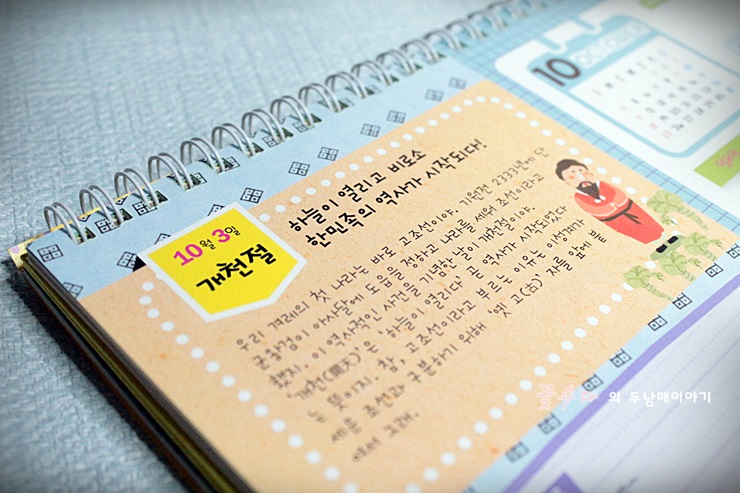 10
10월 3일
개천절
하늘이 열리고 비로소
한민족의 역사가 시작되다!
우리 겨레의 첫 나라는 바로 고조선이야. 기원전 2333년에 단
군왕검이 아사달에 도읍을 정하고 나라를 세워 조선이라고
했지. 이 역사적인 사건을 기념한 날이 개천절이야.
'개천(開天)'은 '하늘이 열리다' 곧 역사가 시작되었다
는 뜻이지. 참, 고조선이라고 부르는 이유는 이성계가
세운 조선과 구분하기 위해 '옛 고(古)' 자를 앞에 붙
여서 그래.
의 두남매이야기